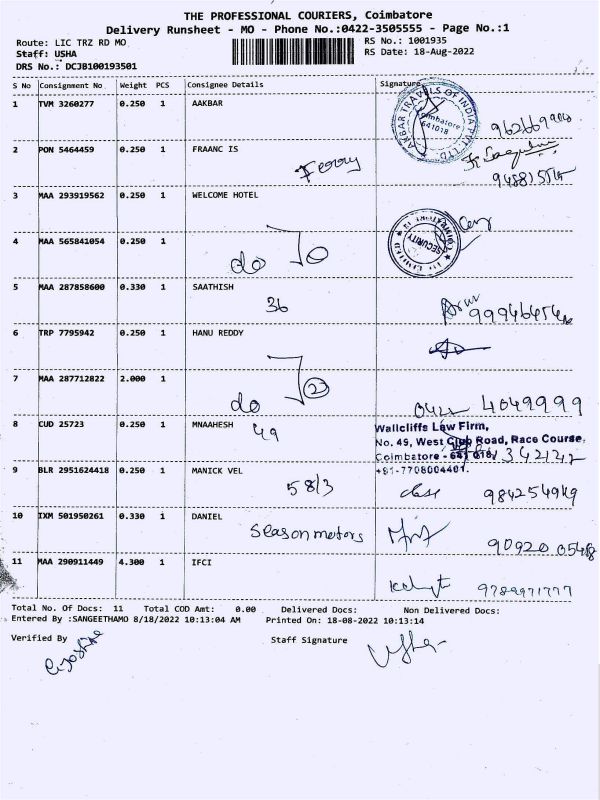 THE PROFESSIONAL COURIERS, Coimbatore
Delivery Runsheet - MO - Phone No.:0422-3505555 - Page No.:1
Route: LIC TRZ RD MO
RS No.: 1001935
Staff: USHA
RS Date: 18-Aug-2022
DRS No.: DCJB100193501
S No Consignment No Weight PCS Consignee Details Signature
1 TVM 3260277 0.250 1 AAKBAR
AKBAR TRAVELS OF INDIA PVT. LTD.
Coimbatore
641018
2 PON 5464459 0.250 1 FRAANC IS
Ferry
3 MAA 293919562 0.250 1 WELCOME HOTEL
SECURITY
4 MAA 565841054 0.250 1
do
5 MAA 287858600 0.330 1 SAATHISH
36
6 TRP 7795942 0.250 1 HANU REDDY
7 MAA 287712822 2.000 1
do
0422 4049999
8 CUD 25723 0.250 1 MNAAHESH
49
Wallcliffs Law Firm,
No. 49, West Club Road, Race Course,
Coimbatore - 641 018
+91-7708004401.
9 BLR 2951624418 0.250 1 MANICK VEL
58/3
10 IXM 501950261 0.330 1 DANIEL
Season motors
90920 05418
11 MAA 290911449 4.300 1 IFCI
9789971777
Total No. Of Docs: 11 Total COD Amt: 0.00 Delivered Docs: Non Delivered Docs:
Entered By :SANGEETHAMO 8/18/2022 10:13:04 AM Printed On: 18-08-2022 10:13:14
Verified By Staff Signature
Usha